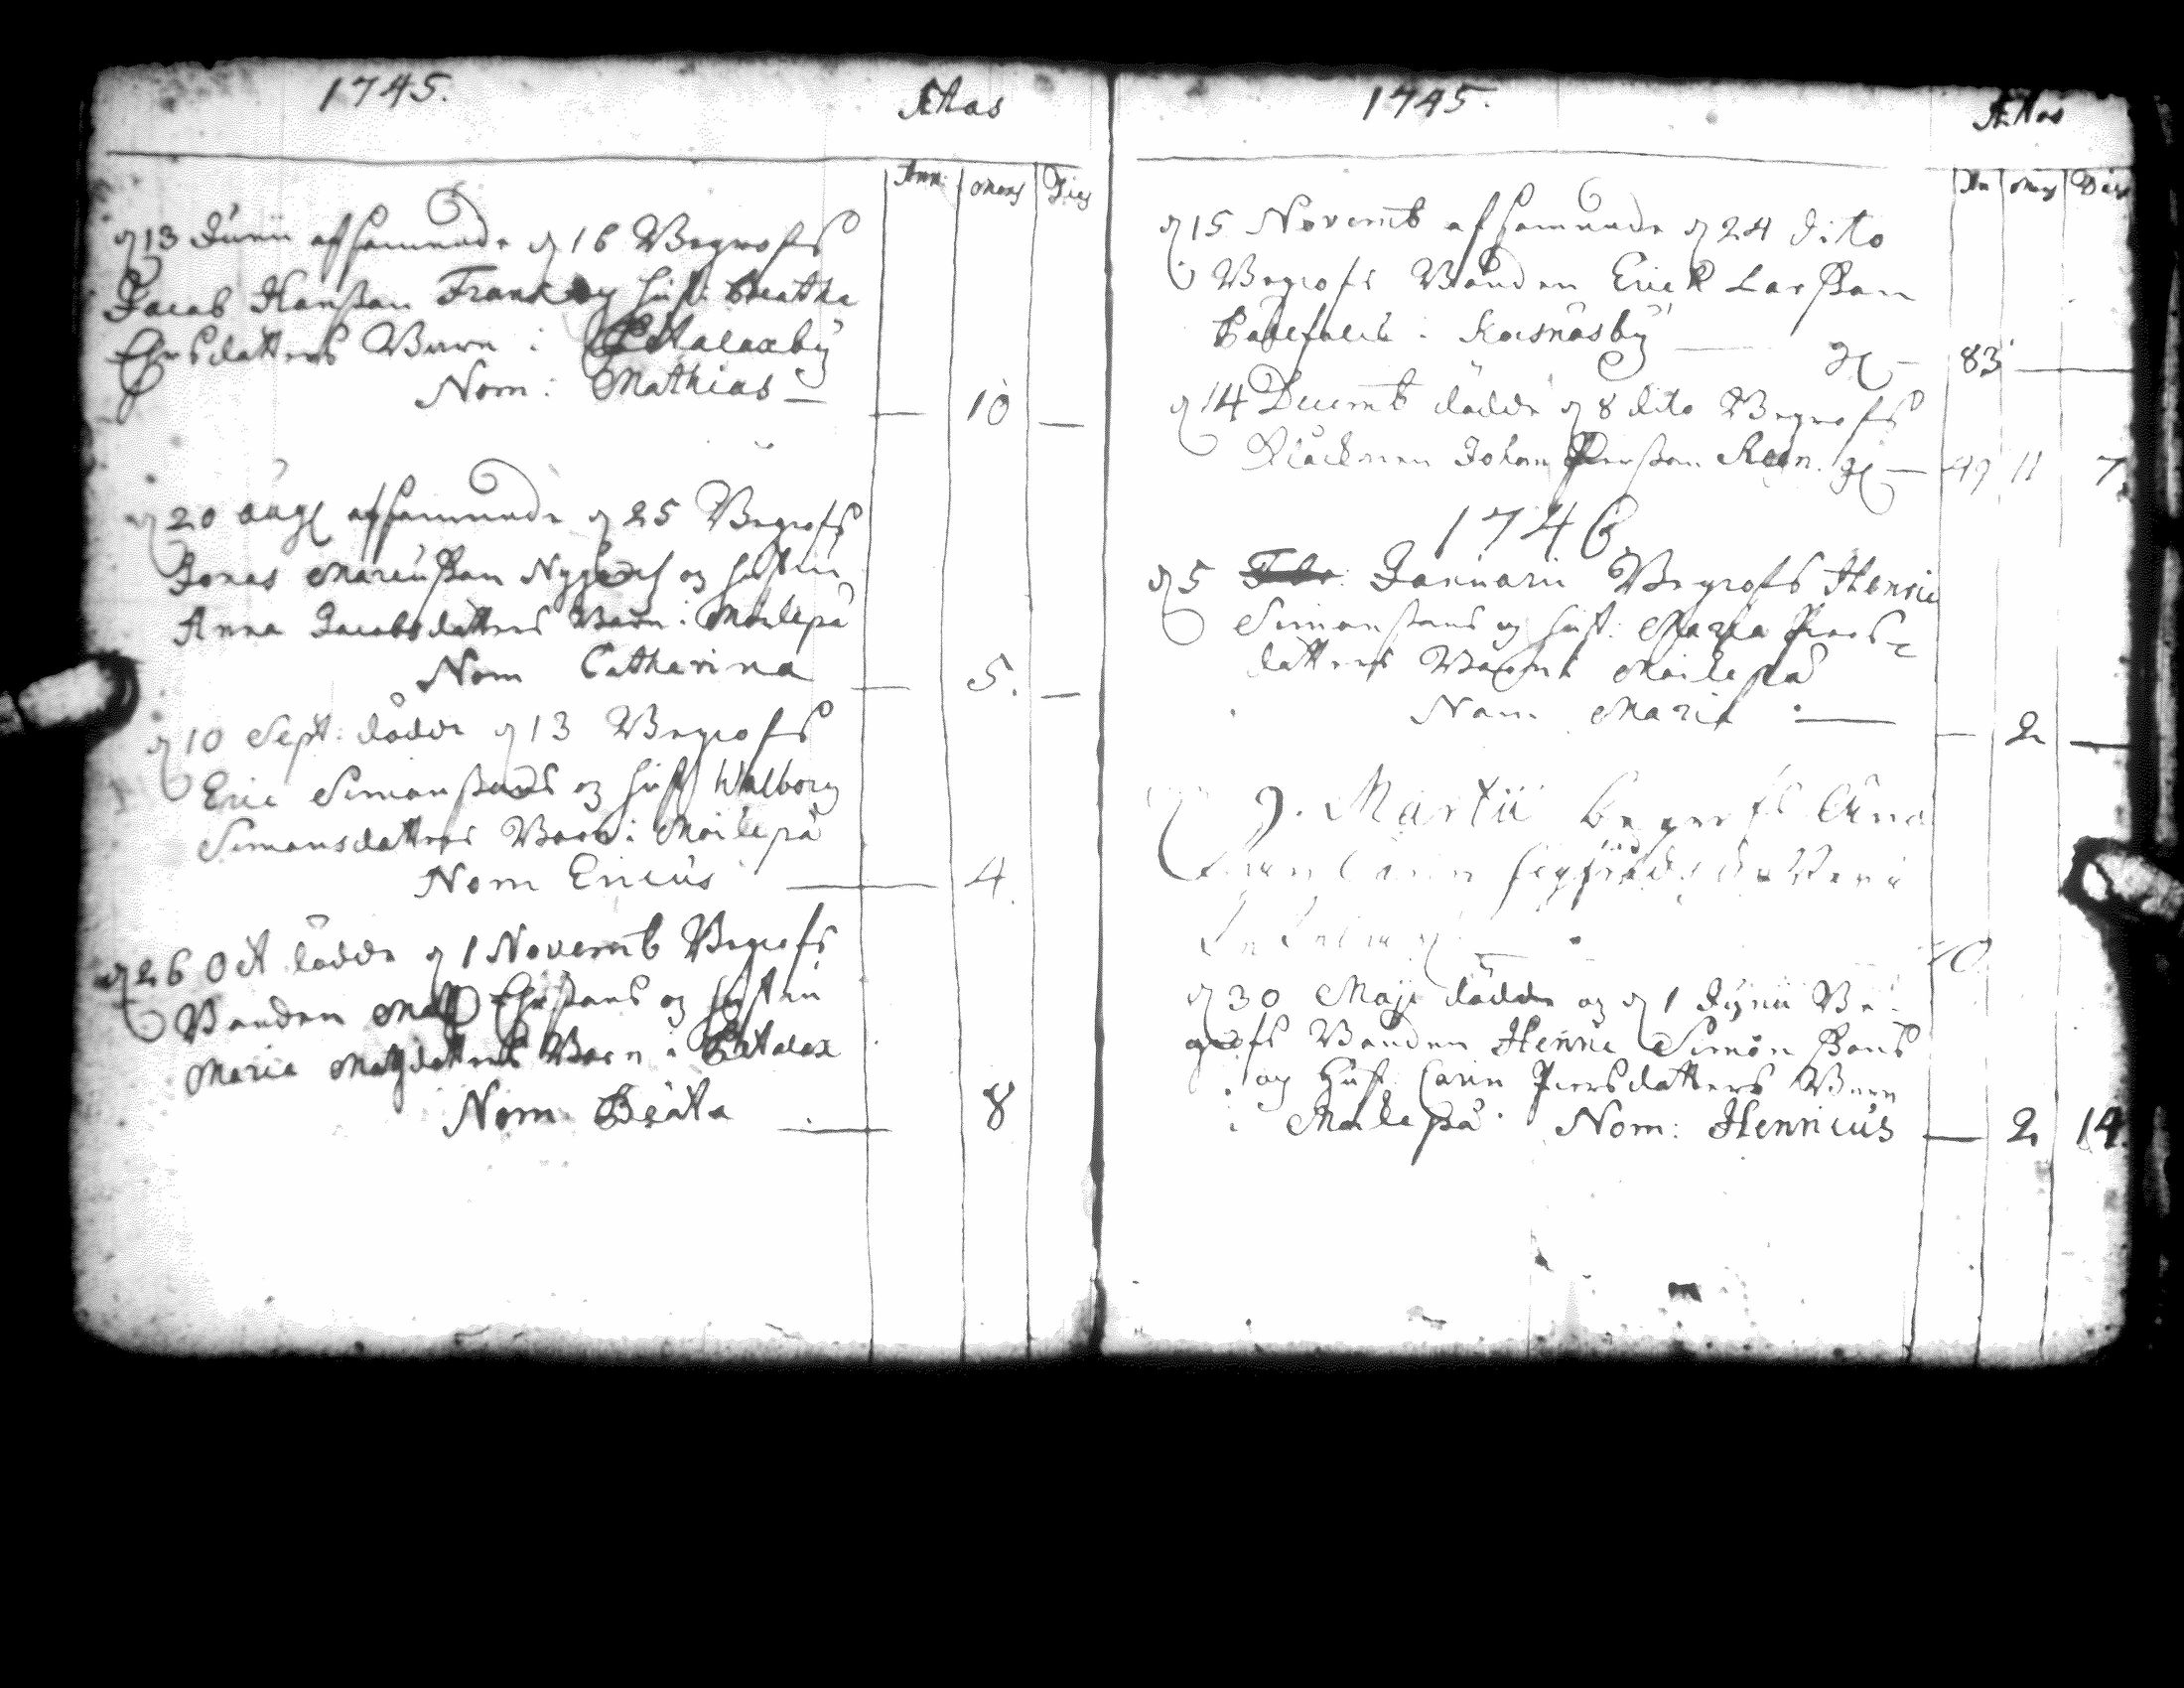 1745.
Ætas
Ann: Mens Dies
d 13 Junii afsomnade d 16 Begrofs
Jacob Hanßon Frank og hust: Beatha
Ersdotters Barn i Petalaxby
Nom: Mathias — — 10 —
d 20 Aug afsomnade d 25 Begrofs
Jonas Marcußon Nygård og hustru
Anna Jacobsdotters Barn i Moilepå
Nom Catharina — 5. —
d 10 Sept: dödde d 13 Begrofs
Eric Simonßons og hust Walborg
Simonsdotters Barn i Moilepå
Nom Ericus — 4.
d 26 Oct dödde d 1 Novemb Begrofs
Bonden Matts Ersßons og hustru
Maria Mattsdotters Barn i Petalax
Nom Beata — 8
1745.
Ætas
An Mens Dies
d 15 Novemb afsomnade d 24 dito
Begrofs Bonden Erick Larßon
i Korsnäsby — 83 —
d 14 Decemb dödde d 8 dito Begrofs
Klåckaren Johan Perßon — 49 11 7.
1746.
d 5 Januarii Begrofs Henric
Simonßons og hust: Maria Pers-
dotters Barn i Moilepå
Nom. Maria — — 2 —
9. Martii begrofs
Carin Sigfrids dotter i
d 30 Maji dödde og d 1 Junii Be-
grofs Bonden Henric Simonßons
og Hust Carin Persdotters Barn
i Moilepå Nom: Henricus — 2 14.